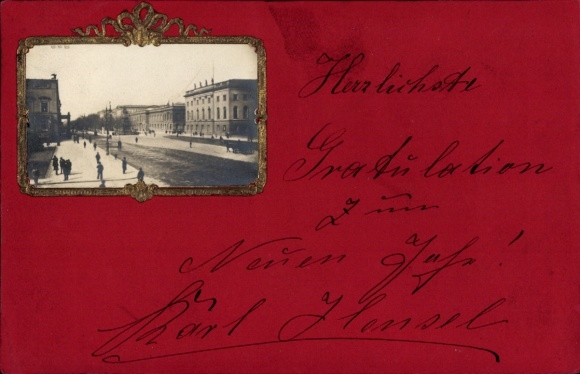 Herrlichste
Gratulation
zum
Neuen Jahr!
Karl Hensel